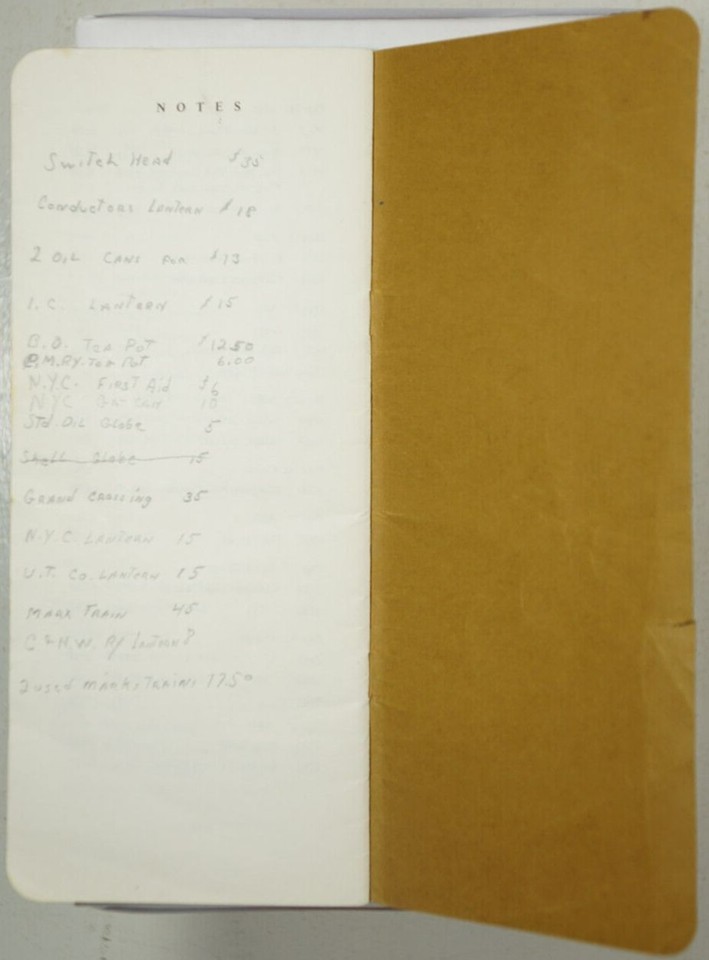 NOTES
Switch Head $35
Conductors Lantern $18
2 Oil Cans for $13
I.C. Lantern $15
B.O. Tea Pot $12.50
P.M.RY. Tea Pot 6.00
N.Y.C. First Aid $6
NYC Can 10
Std. Oil Globe 5
Shell Globe 15
Grand Crossing 35
N.Y.C. Lantern 15
U.T. Co. Lantern 15
Marx Train 45
Ry Lantern 8
2 used Marx Trains 17.50